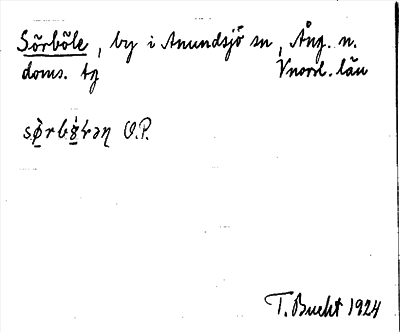 Sörböle, by i Anundsjö sn, Ång. n.
doms. tg Vnorrl. län
O.P.
T. Bucht 1924